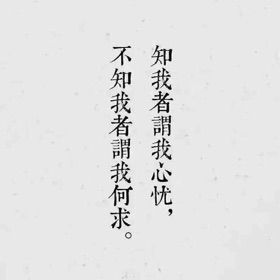 知我者謂我心忧，
不知我者謂我何求。